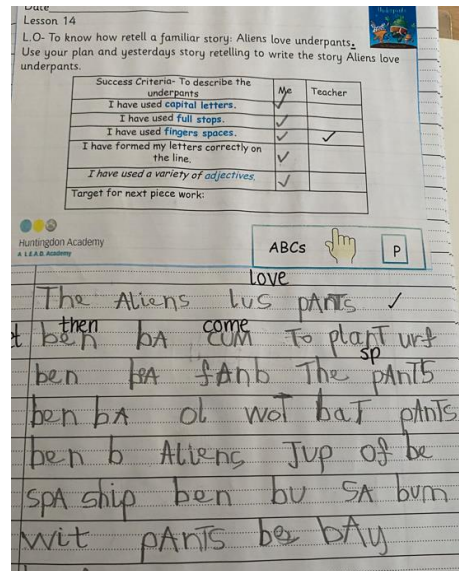 Date
Lesson 14
L.O- To know how retell a familiar story: Aliens love underpants.
Use your plan and yesterdays story retelling to write the story Aliens love
underpants.
Success Criteria- To describe the underpants Me Teacher
I have used capital letters. ✓
I have used full stops. ✓
I have used fingers spaces. ✓ ✓
I have formed my letters correctly on the line. ✓
I have used a variety of adjectives. ✓
Target for next piece work:
Huntingdon Academy
A L.E.A.D. Academy
ABCs P
love
The Aliens lus pAnTs ✓
then come
ben bA cum To planT urf
sp
ben bA fAnb The pAnTs
ben bA ol woT baT pAnTs
ben b Aliens Jup of be
spA ship ben bu SA bum
wiT pAnTs be bAy